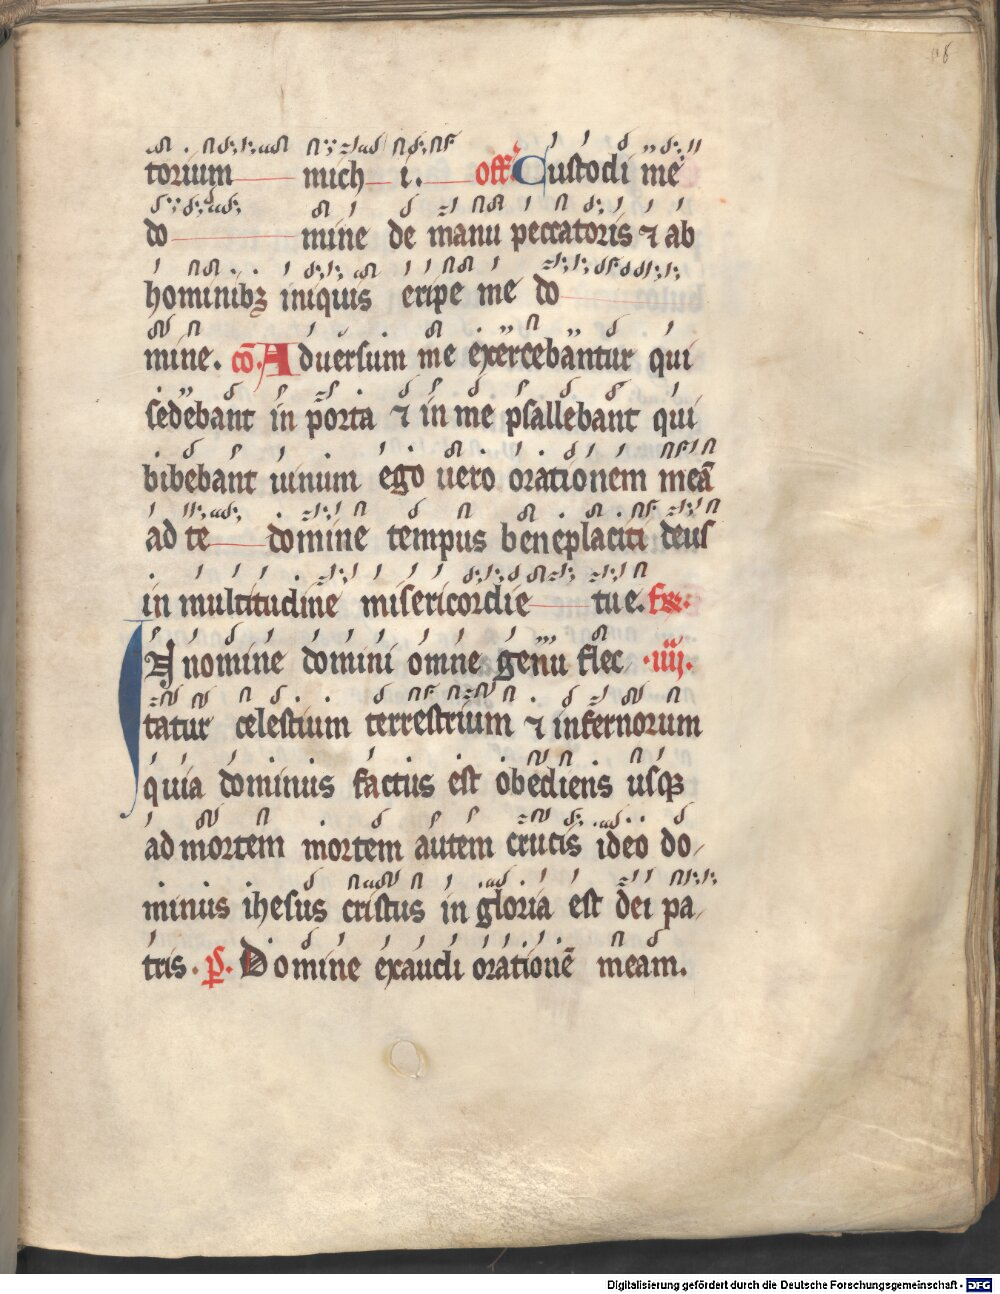 torium mich i. off. Custodi me
do mine de manu peccatoris ⁊ ab
hominibꝫ iniquis eripe me do
mine. cō. Aduersum me exercebantur qui
sedebant in porta ⁊ in me psallebant qui
bibebant uinum ego uero orationem meā
ad te domine tempus beneplaciti deus
in multitudine misericordie tue.
In nomine domini omne genu flec · iiij.
tatur celestium terrestrium ⁊ infernorum
quia dominus factus est obediens usqꝫ
ad mortem mortem autem crucis ideo do/
minus ihesus cristus in gloria est dei pa/
tris . ps. Domine exaudi orationē meam.
Digitalisierung gefördert durch die Deutsche Forschungsgemeinschaft - DFG